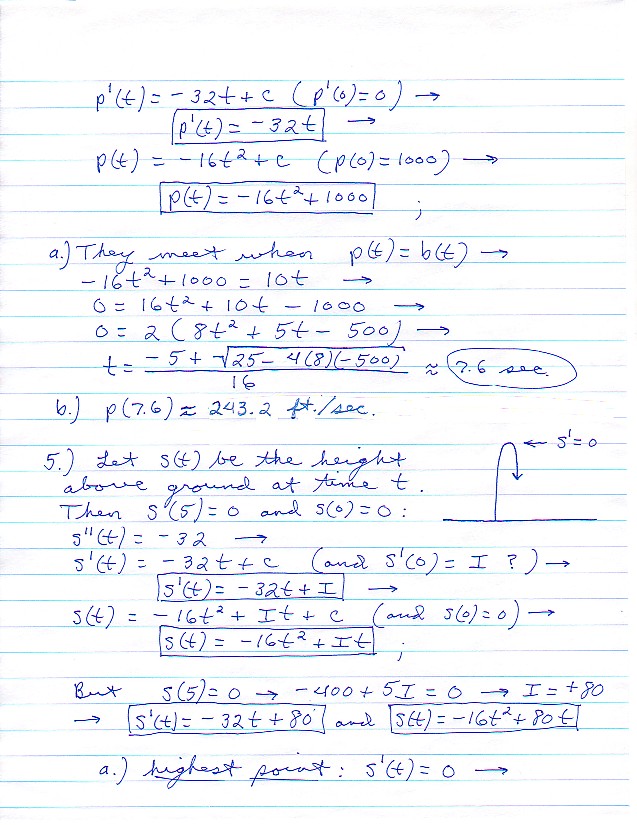 p'(t) = -32t + c (p'(0)=0) →
p'(t) = -32t →
p(t) = -16t² + c (p(0)=1000) →
p(t) = -16t² + 1000 ;
a.) They meet when p(t) = b(t) →
-16t² + 1000 = 10t →
0 = 16t² + 10t - 1000 →
0 = 2 (8t² + 5t - 500) →
t = (-5 + √(25 - 4(8)(-500))) / 16 ≈ 7.6 sec.
b.) p(7.6) ≈ 243.2 ft./sec.
5.) Let s(t) be the height
above ground at time t.
Then s'(5) = 0 and s(0) = 0 :
← s' = 0
s''(t) = -32 →
s'(t) = -32t + c (and s'(0) = I ?) →
s'(t) = -32t + I →
s(t) = -16t² + It + c (and s(0) = 0) →
s(t) = -16t² + It ;
But s(5) = 0 → -400 + 5I = 0 → I = +80
→ s'(t) = -32t + 80 and s(t) = -16t² + 80t
a.) highest point : s'(t) = 0 →